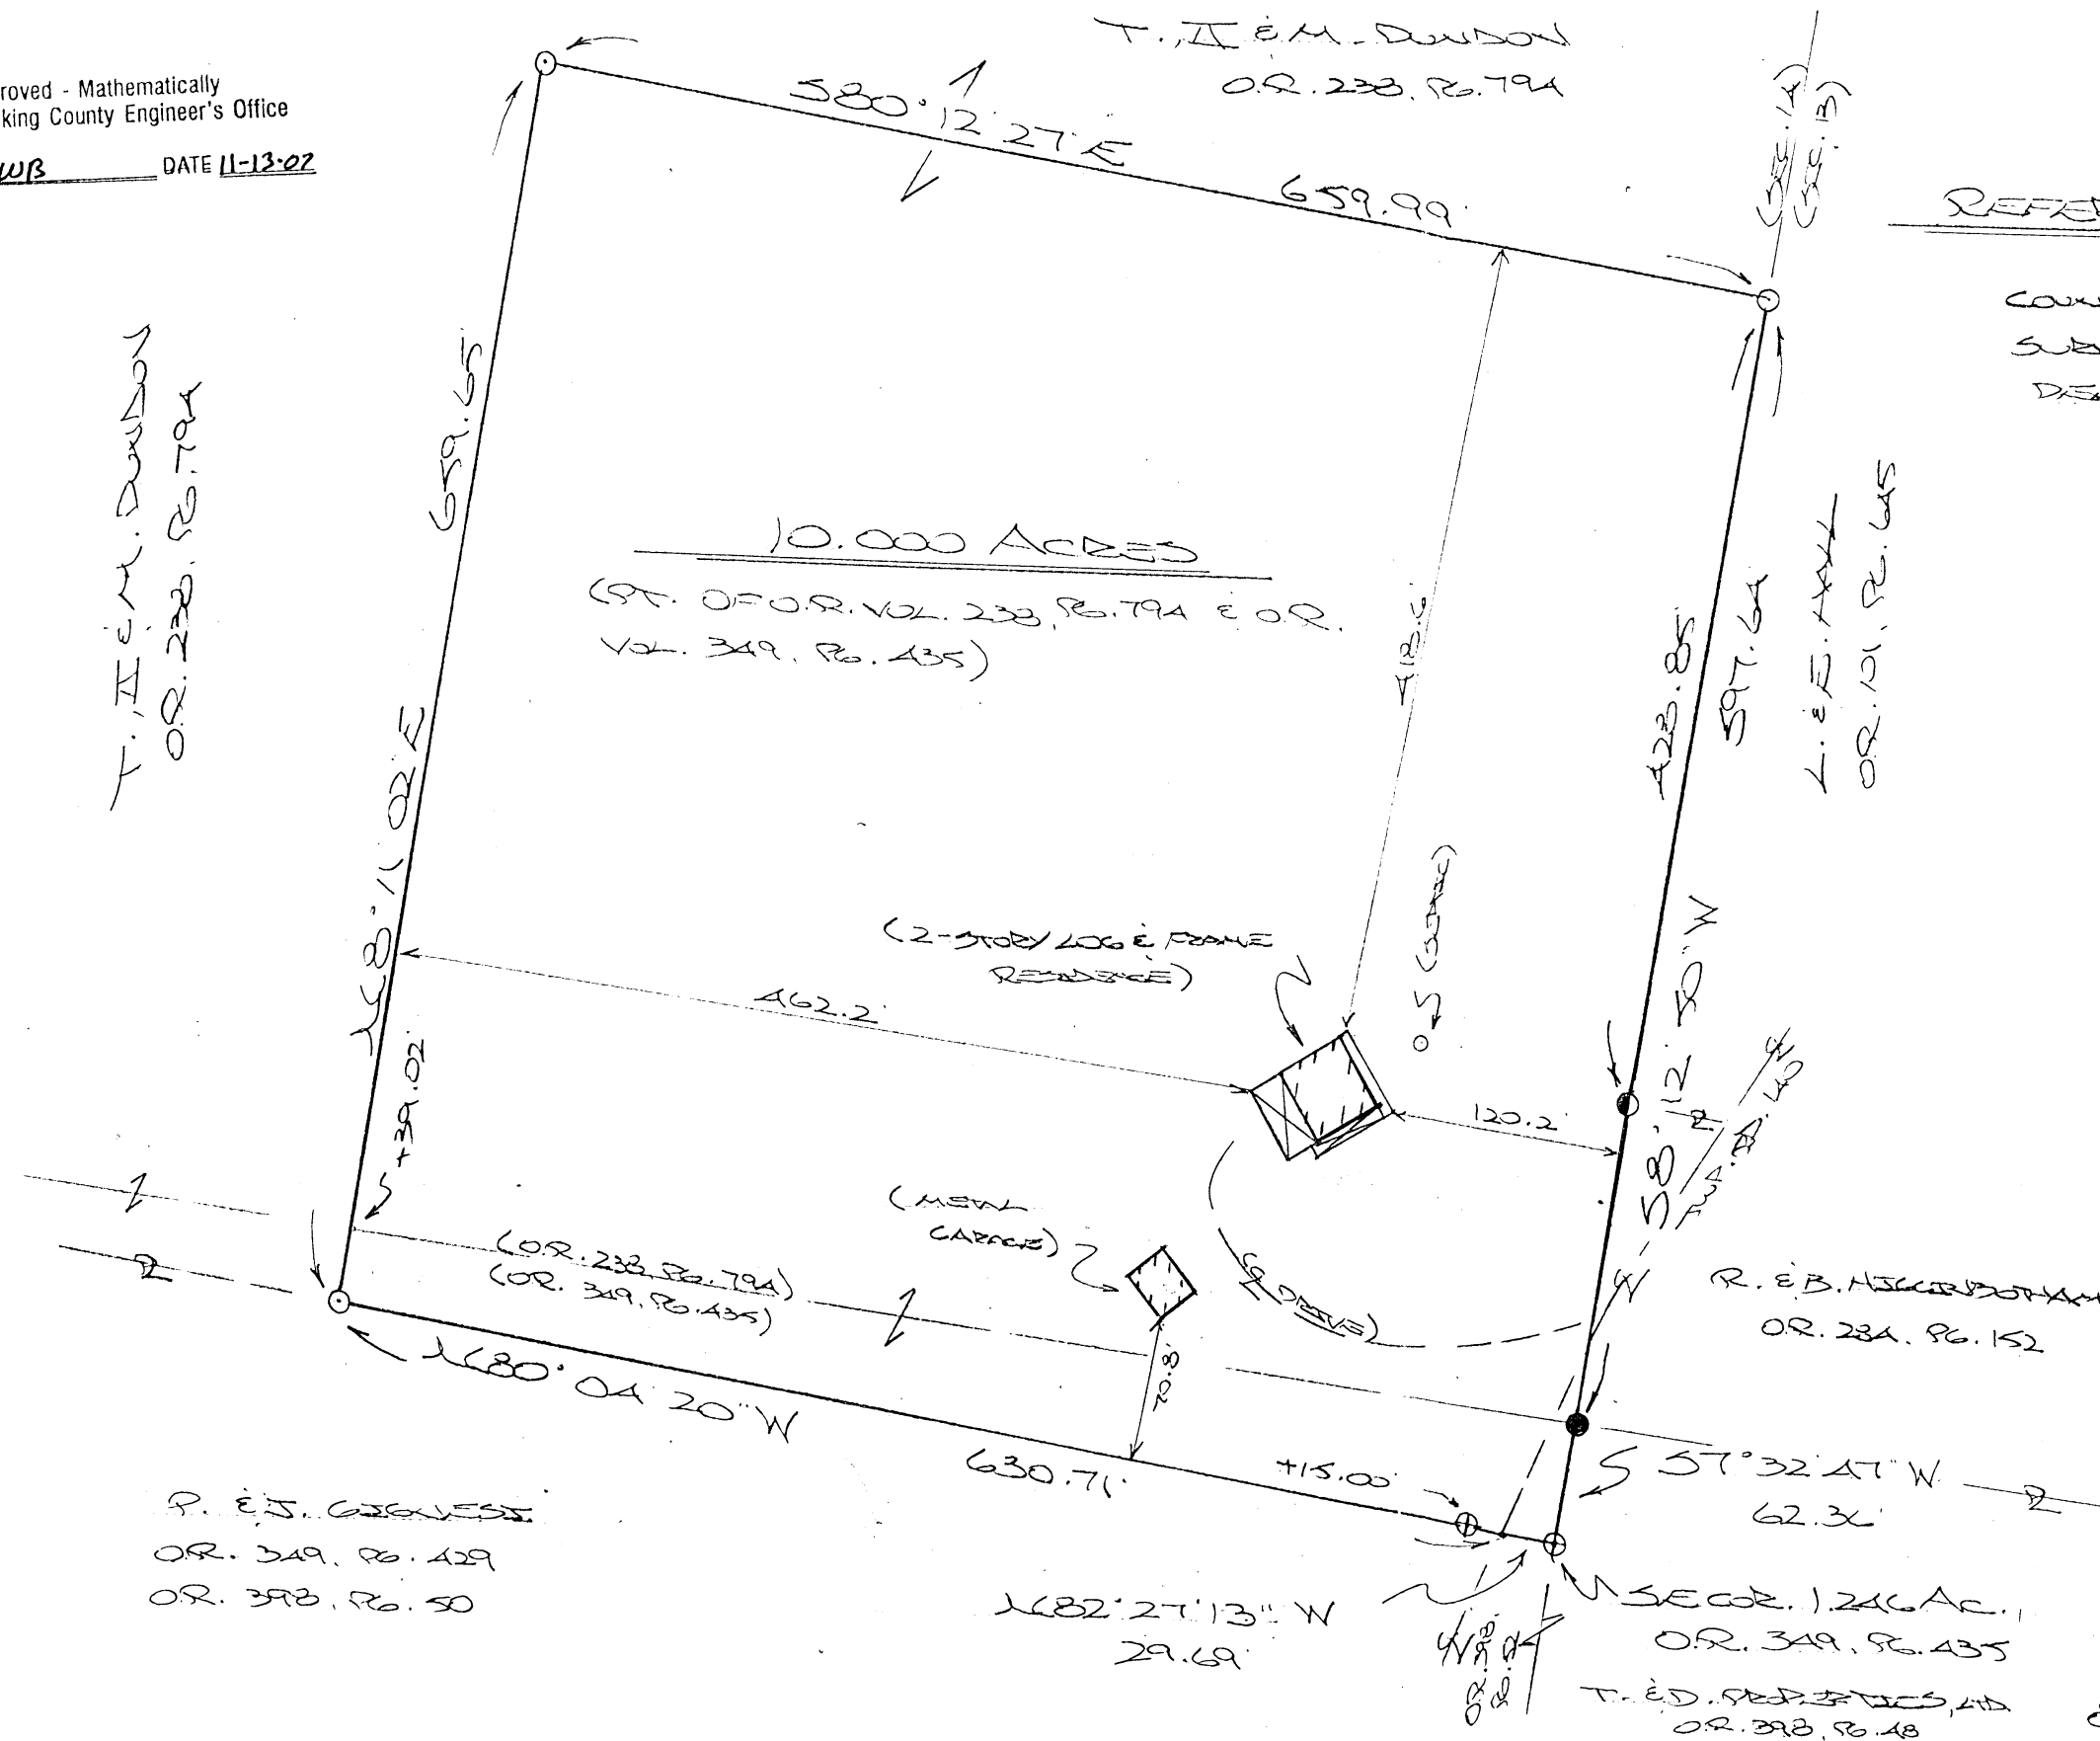 roved - Mathematically
king County Engineer's Office
WB DATE 11-13-02
T., II & M. DUNDON
O.R. 233, PG. 794
S80° 12' 27" E
659.99'
(SEC. 14)
(SEC. 13)
REFER
COUN
SUR
DE
T., II & M. DUNDON
O.R. 233, PG. 794
659.65'
N8° 11' 02" E
+39.02'
10.000 ACRES
(PT. OF O.R. VOL. 233, PG. 794 & O.R.
VOL. 349, PG. 435)
418.6'
423.85'
597.64'
L. & E.
O.R. 101, PG. 645
S8° 12' 50" W
(2-STORY LOG & FRAME
RESIDENCE)
462.2'
120.2'
TWP. RD. 140
(METAL
GARAGE)
(DRIVE)
70.8'
(O.R. 233, PG. 794)
(O.R. 349, PG. 435)
R. & B. HIGGINBOTHAM
O.R. 234, PG. 152
N80° 04' 20" W
630.71'
+15.00'
S7° 32' 47" W
62.36'
P. & J.
O.R. 349, PG. 429
O.R. 393, PG. 50
N82° 27' 13" W
29.69'
SE COR. 1.246 AC.,
O.R. 349, PG. 435
T. & D. PROPERTIES, LTD.
O.R. 393, PG. 48